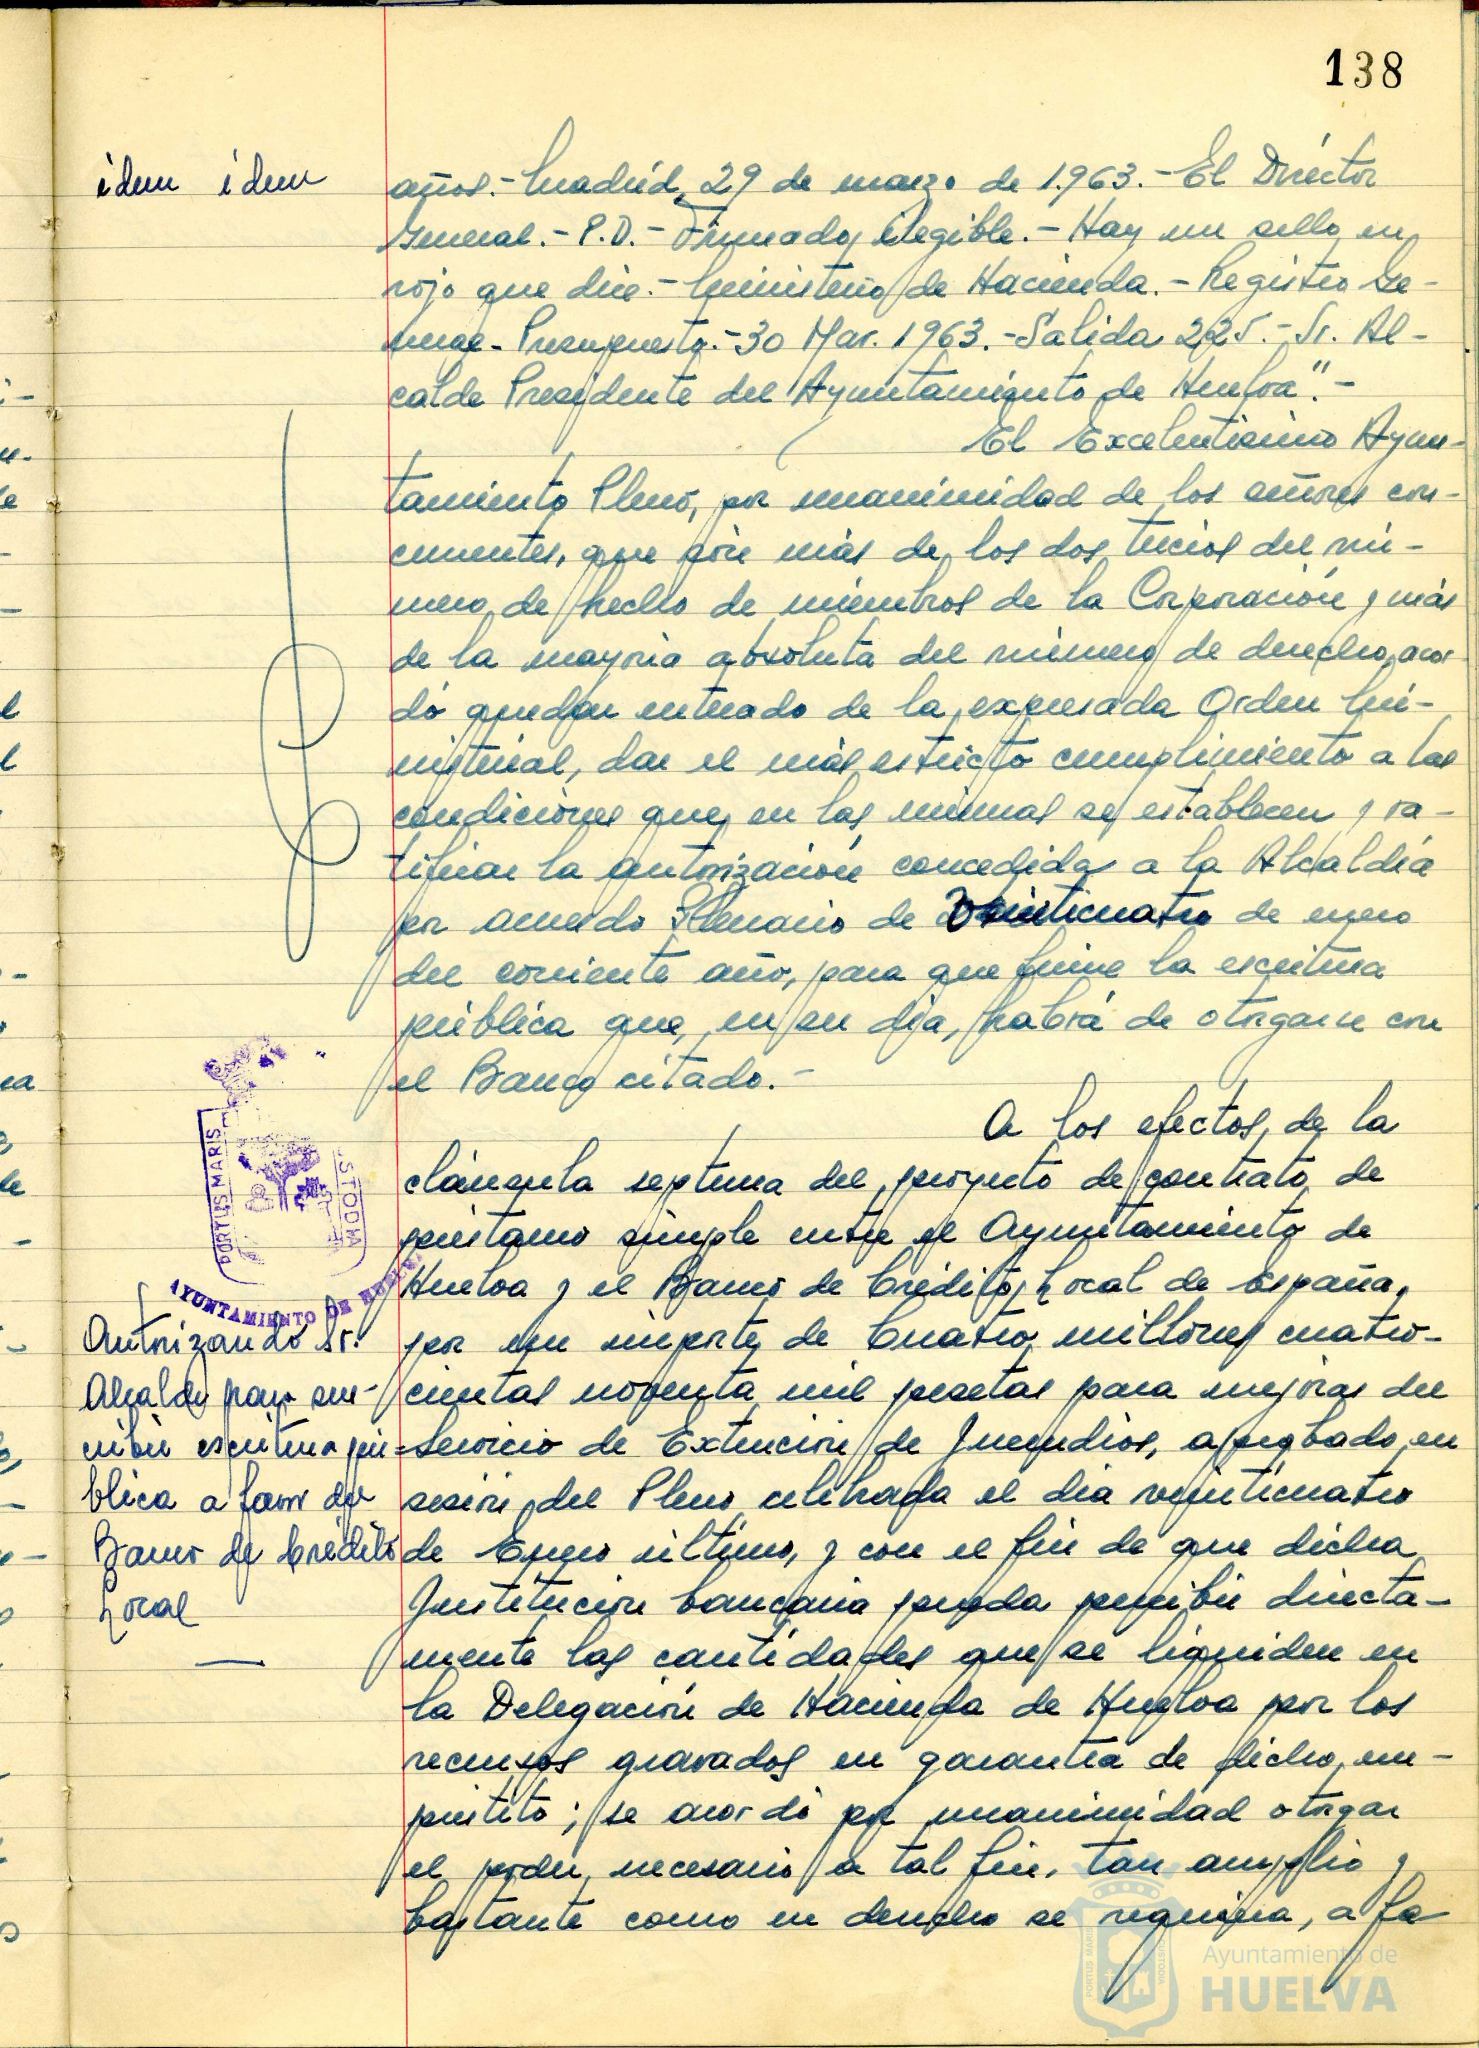 138
idem idem
años.- Madrid, 29 de marzo de 1.963.- El Director
General.- P.D.- Firmado, ilegible.- Hay un sello en
rojo que dice.- Ministerio de Hacienda.- Registro Ge-
neral- Presupuesto.- 30 Mar. 1963.- Salida 225.- Sr. Al-
calde Presidente del Ayuntamiento de Huelva".-
El Excelentísimo Ayun-
tamiento Pleno, por unanimidad de los señores con-
currentes, que son más de los dos tercios del nú-
mero de hecho de miembros de la Corporación y más
de la mayoría absoluta del número de derecho, acor
dó quedar enterado de la expresada Orden Mi-
nisterial, dar el más estricto cumplimiento a las
condiciones que en las mismas se establecen y ra-
tificar la autorización concedida a la Alcaldía
por acuerdo Plenario de veinticuatro de enero
del corriente año, para que firme la escritura
pública que, en su día, habrá de otorgarse con
el Banco citado.-
A los efectos, de la
cláusula septima del proyecto de contrato de
préstamo simple entre el Ayuntamiento de
Huelva y el Banco de Crédito Local de España,
por un importe de Cuatro millones cuatro-
cientas noventa mil pesetas para mejoras del
Servicio de Extinción de Incendios, aprobado en
sesión del Pleno celebrada el día veinticuatro
de Enero último, y con el fin de que dicha
Institución bancaria pueda percibir directa-
mente las cantidades que se liquiden en
la Delegación de Hacienda de Huelva por los
recursos gravados en garantía de dicho em-
préstito; se acordó por unanimidad otorgar
el poder necesario a tal fin, tan amplio y
bastante como en derecho se requiera, a fa
PORTUS MARIS
STODIA
AYUNTAMIENTO DE HUELVA
Autorizando Sr.
Alcalde para sus-
cribir escritura pú-
blica a favor del
Banco de Crédito
Local
PORTUS MARIS
CUSTODIA
Ayuntamiento de
HUELVA